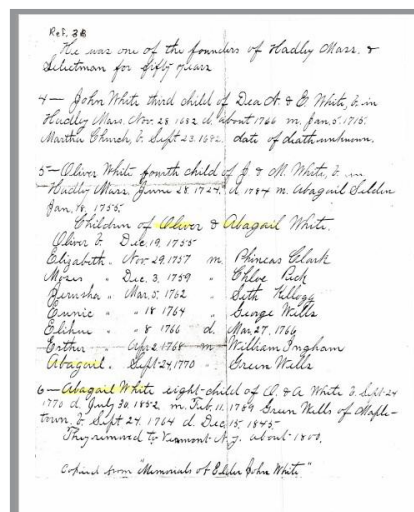 Ref. 3B
He was one of the founders of Hadley Mass. &
Selectman for fifty years
4 — John White third child of Dea N. & E. White, b. in
Hadley Mass. Nov. 28, 1682 d. about 1766 m. Jan. 5, 1715.
Martha Church, b. Sept 23, 1692. date of death unknown.
5 — Oliver White fourth child of J. & M. White, b. in
Hadley Mass. June 28, 1724. d. 1784 m. Abagail Selden
Jan. 18, 1755.
Children of Oliver & Abagail White.
Oliver b. Dec. 19, 1755
Elizabeth " Nov. 29, 1757 m. Phineas Clark
Moses " Dec. 3, 1759 " Chloe Peck
Jerusha " Mar. 5, 1762 " Seth Kellogg
Eunice " " 18 1764 " George Wells
Elihu " " 8 1766 d. Mar. 27, 1766
Esther " Apr 2 1768 m William Ingham
Abagail " Sept-24, 1770 " Green Wells
6 — Abagail White eight-child of O. & A White b. Sept-24
1770 d. July 30, 1852, m. Feb. 11, 1789 Green Wells of Maple-
town, b. Sept 24, 1764 d. Dec. 15, 1845.
They removed to Vermont N.Y. about 1800.
Copied from "Memorials of Elder John White"